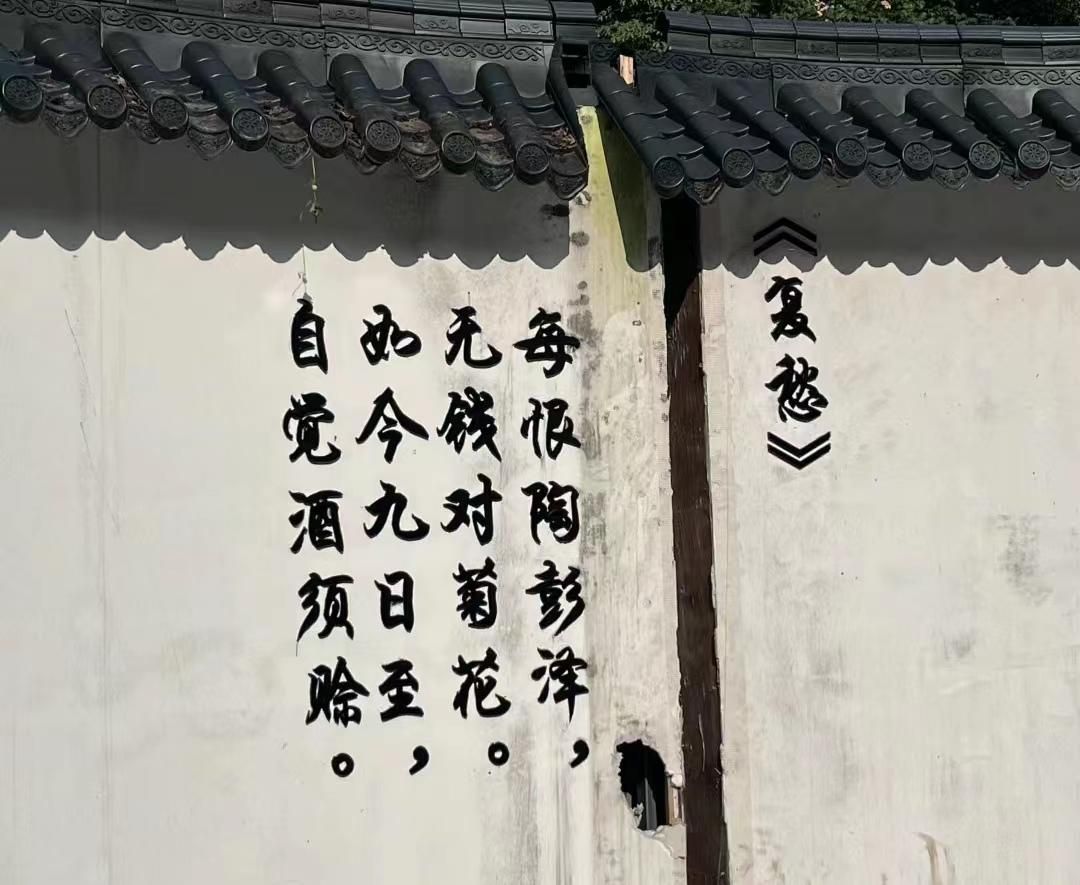 《复愁》
每恨陶彭泽，
无钱对菊花。
如今九日至，
自觉酒须赊。